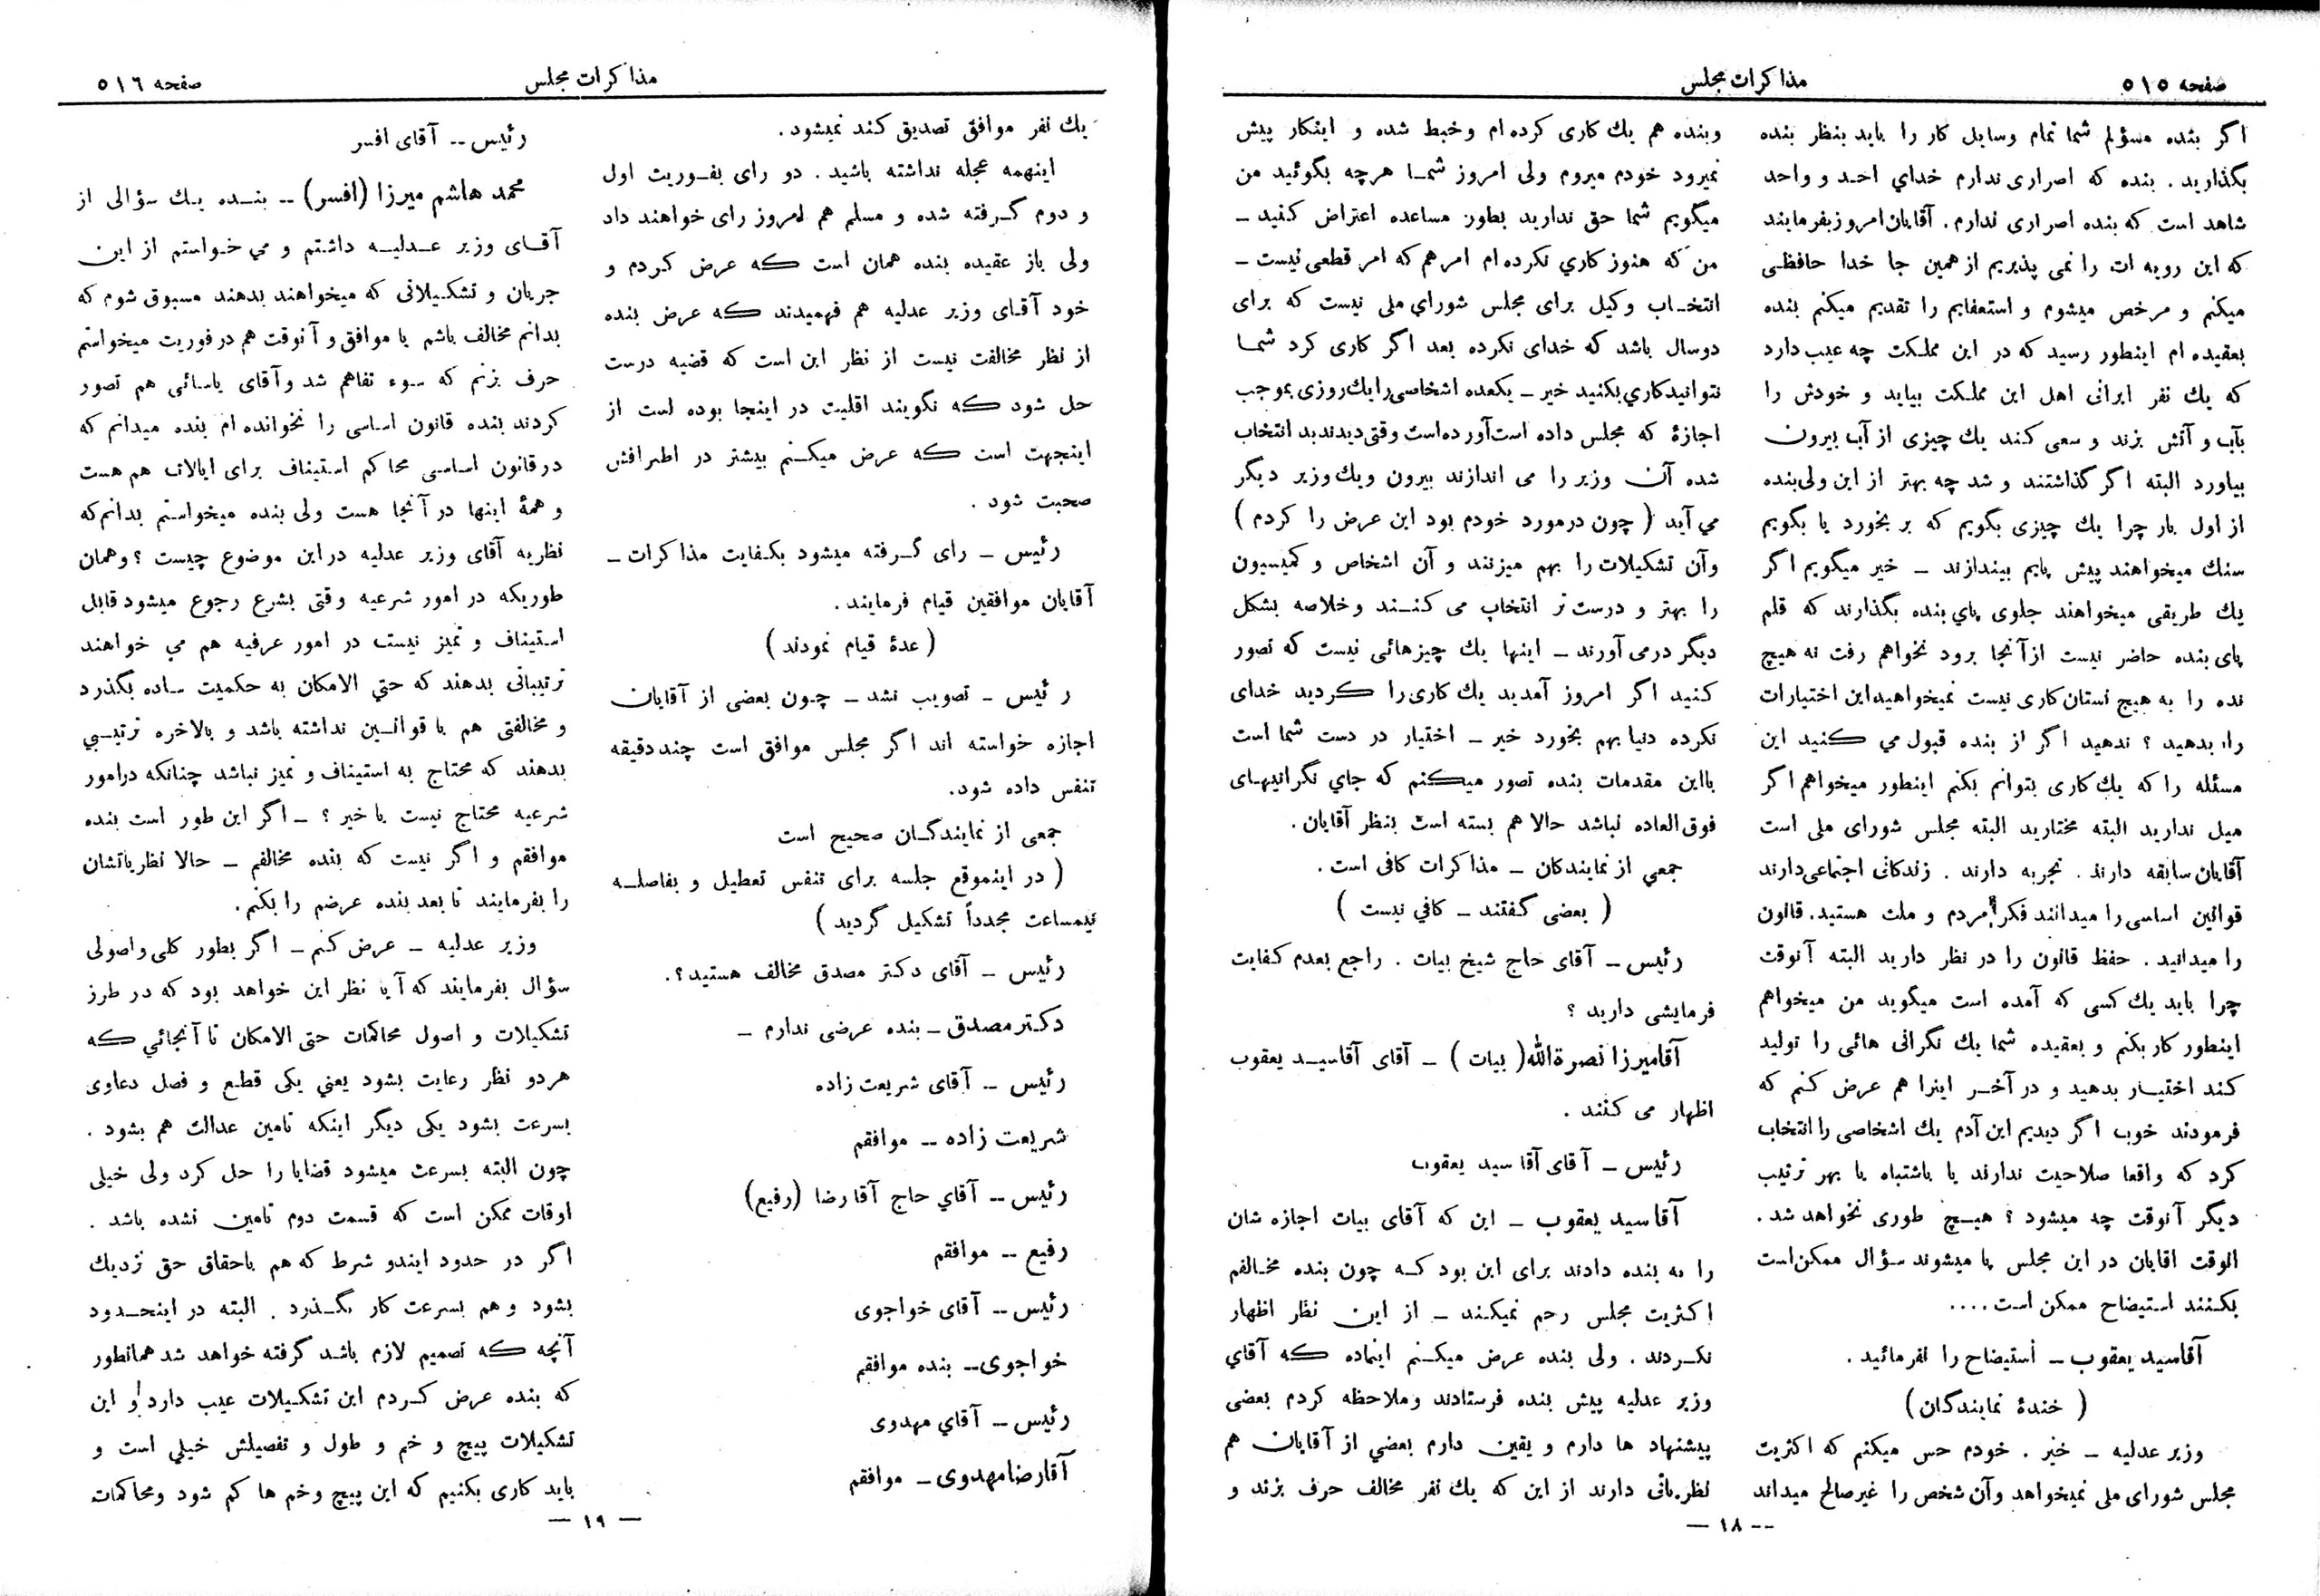 صفحه ۵۱۵
مذاکرات مجلس
اگر بنده مسؤلم شما تمام وسایل کار را باید بنظر بنده
بگذارید . بنده که اصراری ندارم خدای احد و واحد
شاهد است که بنده اصراری ندارم . آقایان امروز بفرمایند
که این رویه ات را نمی پذیریم از همین جا خدا حافظی
میکنم و مرخص میشوم و استعفایم را تقدیم میکنم بنده
بعقیده ام اینطور رسید که در این مملکت چه عیب دارد
که یك نفر ایرانی اهل این مملکت بیاید و خودش را
بآب و آتش بزند و سعی کند یك چیزی از آب بیرون
بیاورد البته اگر گذاشتند و شد چه بهتر از این ولی بنده
از اول بار چرا یك چیزی بگویم که بر بخورد یا بگویم
سنك میخواهند پیش پایم بیندازند ـ خیر میگویم اگر
یك طریقی میخواهند جلوی پای بنده بگذارند که قلم
پای بنده حاضر نیست از آنجا برود نخواهم رفت نه هیچ
نده را به هیچ استان کاری نیست نمیخواهید این اختیارات
را، بدهید ؟ ندهید اگر از بنده قبول می کنید این
مسئله را که یك کاری بتوانم بکنم اینطور میخواهم اگر
میل ندارید البته مختارید البته مجلس شورای ملی است
آقایان سابقه دارند . تجربه دارند . زندکانی اجتماعی دارند
قوانین اساسی را میدانند فکر مردم و ملت هستید . قانون
را میدانید . حفظ قانون را در نظر دارید البته آنوقت
چرا باید یك کسی که آمده است میگوید من میخواهم
اینطور کار بکنم و بعقیده شما یك نگرانی هائی را تولید
کند اختیار بدهید و در آخر اینرا هم عرض کنم که
فرمودند خوب اگر دیدیم این آدم یك اشخاصی را انتخاب
کرد که واقعا صلاحیت ندارند یا باشتباه یا بهر ترتیب
دیگر آنوقت چه میشود ؟ هیچ طوری نخواهد شد .
الوقت اقایان در این مجلس پا میشوند سؤال ممکن است
بکنند استیضاح ممکن است ....
آقاسید یعقوب ـ استیضاح را نفرمائید .
( خندهٔ نمایندگان )
وزیر عدلیه ـ خیر . خودم حس میکنم که اکثریت
مجلس شورای ملی نمیخواهد وآن شخص را غیرصالح میداند
وبنده هم یك کاری کرده ام وخبط شده و اینکار پیش
نمیرود خودم میروم ولی امروز شما هرچه بگوئید من
میگویم شما حق ندارید بطور مساعده اعتراض کنید ـ
من که هنوز کاری نکرده ام امر هم که امر قطعی نیست ـ
انتخاب وکیل برای مجلس شورای ملی نیست که برای
دوسال باشد که خدای نکرده بعد اگر کاری کرد شما
نتوانید کاری بکنید خیر ـ یکعده اشخاصی را یك روزی بموجب
اجازهٔ که مجلس داده است آورده است وقتی دیدند بد انتخاب
شده آن وزیر را می اندازند بیرون ویك وزیر دیگر
می آید ( چون درمورد خودم بود این عرض را کردم )
وآن تشکیلات را بهم میزنند و آن اشخاص و کمیسیون
را بهتر و درست تر انتخاب می کنند وخلاصه بشکل
دیگر درمی آورند ـ اینها یك چیزهائی نیست که تصور
کنید اگر امروز آمدید یك کاری را کردید خدای
نکرده دنیا بهم بخورد خیر ـ اختیار در دست شما است
بااین مقدمات بنده تصور میکنم که جای نگرانیهای
فوق العاده نباشد حالا هم بسته است بنظر آقایان .
جمعی از نمایندکان ـ مذاکرات کافی است .
( بعضی گفتند ـ کافی نیست )
رئیس ـ آقای حاج شیخ بیات . راجع بعدم کفایت
فرمایشی دارید ؟
آقامیرزا نصرةالله( بیات ) ـ آقای آقاسید یعقوب
اظهار می کنند .
رئیس ـ آقای آقا سید یعقوب
آقا سید یعقوب ـ این که آقای بیات اجازه شان
را به بنده دادند برای این بود که چون بنده مخالفم
اکثریت مجلس رحم نمیکند ـ از این نظر اظهار
نکردند . ولی بنده عرض میکنم اینماده که آقای
وزیر عدلیه پیش بنده فرستادند وملاحظه کردم بعضی
پیشنهاد ها دارم و یقین دارم بعضی از آقایان هم
نظریاتی دارند از این که یك نفر مخالف حرف بزند و
-- ۱۸ —
مذاکرات مجلس
صفحه ۵۱٦
یك نفر موافق تصدیق کند نمیشود .
اینهمه عجله نداشته باشید . دو رای بفوریت اول
و دوم گرفته شده و مسلم هم امروز رای خواهند داد
ولی باز عقیده بنده همان است که عرض کردم و
خود آقای وزیر عدلیه هم فهمیدند که عرض بنده
از نظر مخالفت نیست از نظر این است که قضیه درست
حل شود که نگویند اقلیت در اینجا بوده است از
اینجهت است که عرض میکنم بیشتر در اطرافش
صحبت شود .
رئیس ـ رای گرفته میشود بکفایت مذاکرات ـ
آقایان موافقین قیام فرمایند .
( عدهٔ قیام نمودند )
رئیس ـ تصویب نشد ـ چون بعضی از آقایان
اجازه خواسته اند اگر مجلس موافق است چند دقیقه
تنفس داده شود .
جمعی از نمایندگان صحیح است
( در اینموقع جلسه برای تنفس تعطیل و بفاصله
نیمساعت مجدداً تشکیل گردید )
رئیس ـ آقای دکتر مصدق مخالف هستید ؟ .
دکتر مصدق ـ بنده عرضی ندارم ـ
رئیس -- آقای شریعت زاده
شریعت زاده -- موافقم
رئیس -- آقای حاج آقا رضا (رفیع)
رفیع -- موافقم
رئیس -- آقای خواجوی
خواجوی-- بنده موافقم
رئیس -- آقای مهدوی
آقارضا مهدوی ـ موافقم
رئیس -- آقای افسر
محمد هاشم میرزا (افسر) -- بنده یك سؤالی از
آقای وزیر عدلیه داشتم و می خواستم از این
جریان و تشکیلاتی که میخواهند بدهند مسبوق شوم که
بدانم مخالف باشم یا موافق و آنوقت هم در فوریت میخواستم
حرف بزنم که سوء تفاهم شد و آقای یاسائی هم تصور
کردند بنده قانون اساسی را نخوانده ام بنده میدانم که
در قانون اساسی محاکم استیناف برای ایالات هم هست
و همهٔ اینها در آنجا هست ولی بنده میخواستم بدانم که
نظریه آقای وزیر عدلیه در این موضوع چیست ؟ وهمان
طوریکه در امور شرعیه وقتی بشرع رجوع میشود قابل
استیناف و تمیز نیست در امور عرفیه هم می خواهند
ترتیباتی بدهند که حتی الامکان به حکمیت ساده بگذرد
و مخالفتی هم با قوانین نداشته باشد و بالاخره ترتیبی
بدهند که محتاج به استیناف و تمیز نباشد چنانکه درامور
شرعیه محتاج نیست یا خیر ؟ ـ اگر این طور است بنده
موافقم و اگر نیست که بنده مخالفم ـ حالا نظریاتشان
را بفرمایند تا بعد بنده عرضم را بکنم .
وزیر عدلیه ـ عرض کنم ـ اگر بطور کلی واصولی
سؤال بفرمایند که آیا نظر این خواهد بود که در طرز
تشکیلات و اصول محاکمات حتی الامکان تا آنجائی که
هر دو نظر رعایت بشود یعنی یکی قطع و فصل دعاوی
بسرعت بشود یکی دیگر اینکه تامین عدالت هم بشود .
چون البته بسرعت میشود قضایا را حل کرد ولی خیلی
اوقات ممکن است که قسمت دوم تامین نشده باشد .
اگر در حدود ایندو شرط که هم باحقاق حق نزدیك
بشود و هم بسرعت کار بگذرد . البته در اینحدود
آنچه که تصمیم لازم باشد گرفته خواهد شد همانطور
که بنده عرض کردم این تشکیلات عیب دارد و این
تشکیلات پیچ و خم و طول و تفصیلش خیلی است و
باید کاری بکنیم که این پیچ وخم ها کم شود ومحاکمات
— ۱۹ —